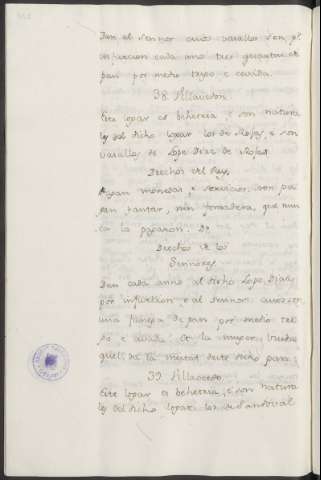 Dan al sennor cuios vasallos son p.r
infurcion cada anno tres quartas de
pan por medio trigo e cevada.
38. Villaveton
Este logar es behetria, e son natura
les del dicho logar los de Rojas, e son
vasallos de Lope Diaz de Rojas
Derechos del Rey.
Pagan monedas e servicios, non pa
gan yantar, nin fonsadera, que nun
ca la pagaron.
Derechos de los
Sennores
Dan cada anno al dicho Lope Diaz
por infurcion e al sennor
una fanega de pan por medio tri
go e cevada et la muger viuda
que la meitat deste dicho pan.
39. Villasceso
Este logar es behetria, e son natura
les del dicho logar los de Sandoval